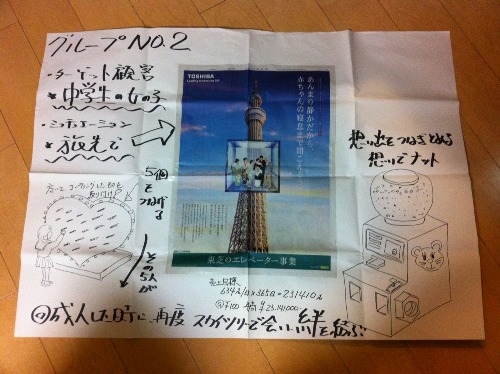 グループNO.2
・ターゲット顧客
★中学生の女の子
・シチュエーション
★旅先で
5個をつなげる
その5人が
TOSHIBA
Leading Innovation >>>
あんまり静かだから、
赤ちゃんの寝息まで聞こえそう。
東芝のエレベーター事業
想い出をつなぎとめる
想いでナット
売上目標
634コ/日×365日=231410コ
@¥100 ¥23.141000
成人した時に再度 スカイツリーで会い、絆を結ぶ